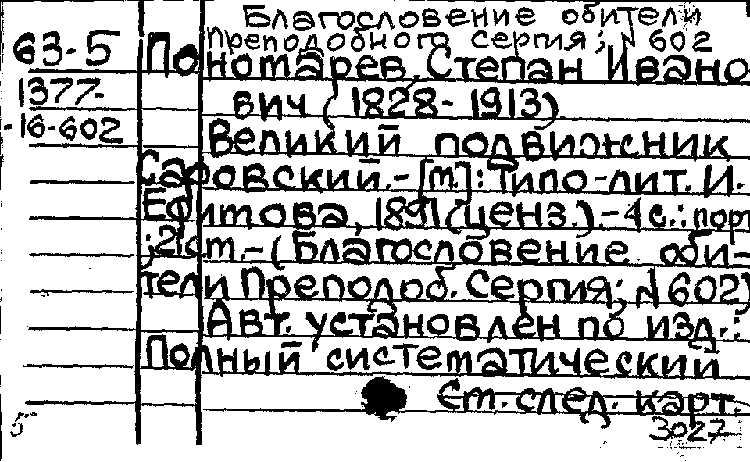 Благословение обители
Преподобного Сергия; N 602
63-5
Пономарев, Степан Ивано-
1377-
вич (1828-1913)
-16-602
Великий подвижник
Саровский.-[М.]: Типо-лит. И.
Ефимова, 1891 (ценз.).-4 с.: порт
; 21 см.-(Благословение оби-
тели Преподоб. Сергия; N 602)
Авт. установлен по изд.:
Полный систематический
См. след. карт.
3027
5